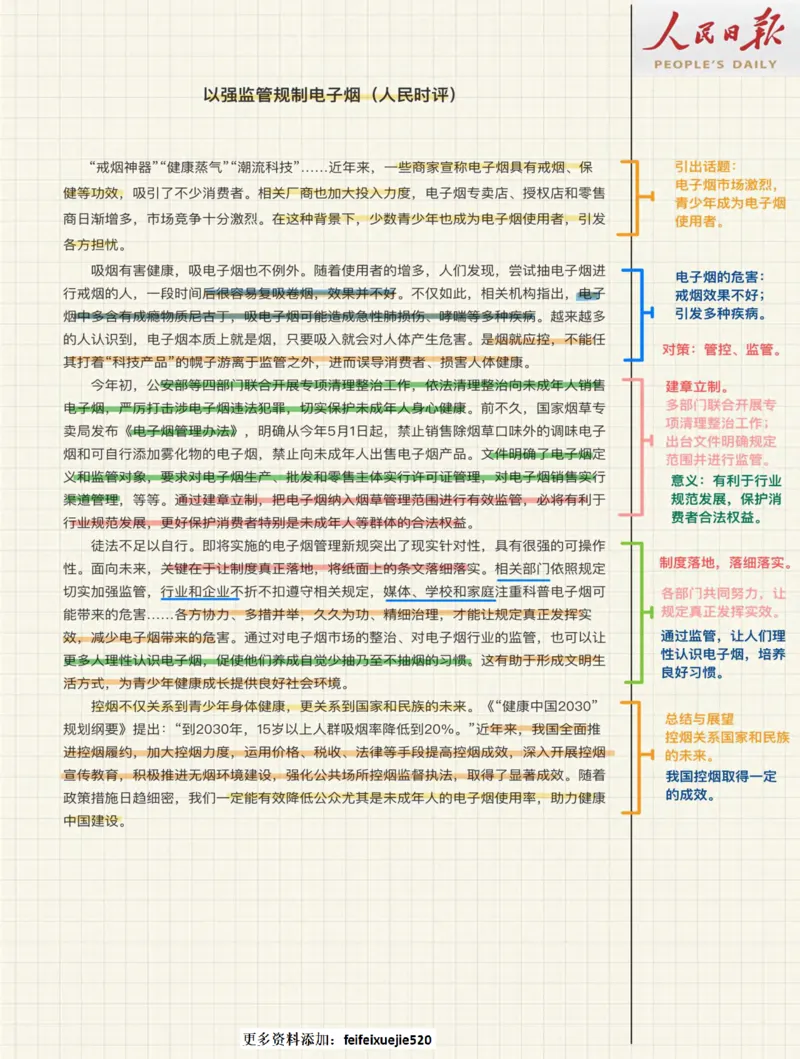 人民日报
PEOPLE'S DAILY
以强监管规制电子烟（人民时评）
“戒烟神器”“健康蒸气”“潮流科技”……近年来，一些商家宣称电子烟具有戒烟、保
健等功效，吸引了不少消费者。相关厂商也加大投入力度，电子烟专卖店、授权店和零售
商日渐增多，市场竞争十分激烈。在这种背景下，少数青少年也成为电子烟使用者，引发
各方担忧。
吸烟有害健康，吸电子烟也不例外。随着使用者的增多，人们发现，尝试抽电子烟进
行戒烟的人，一段时间后很容易复吸卷烟，效果并不好。不仅如此，相关机构指出，电子
烟中多含有成瘾物质尼古丁，吸电子烟可能造成急性肺损伤、哮喘等多种疾病。越来越多
的人认识到，电子烟本质上就是烟，只要吸入就会对人体产生危害。是烟就应控，不能任
其打着“科技产品”的幌子游离于监管之外，进而误导消费者、损害人体健康。
今年初，公安部等四部门联合开展专项清理整治工作，依法清理整治向未成年人销售
电子烟，严厉打击涉电子烟违法犯罪，切实保护未成年人身心健康。前不久，国家烟草专
卖局发布《电子烟管理办法》，明确从今年5月1日起，禁止销售除烟草口味外的调味电子
烟和可自行添加雾化物的电子烟，禁止向未成年人出售电子烟产品。文件明确了电子烟定
义和监管对象，要求对电子烟生产、批发和零售主体实行许可证管理，对电子烟销售实行
渠道管理，等等。通过建章立制，把电子烟纳入烟草管理范围进行有效监管，必将有利于
行业规范发展，更好保护消费者特别是未成年人等群体的合法权益。
徒法不足以自行。即将实施的电子烟管理新规突出了现实针对性，具有很强的可操作
性。面向未来，关键在于让制度真正落地，将纸面上的条文落细落实。相关部门依照规定
切实加强监管，行业和企业不折不扣遵守相关规定，媒体、学校和家庭注重科普电子烟可
能带来的危害……各方协力、多措并举，久久为功、精细治理，才能让规定真正发挥实
效，减少电子烟带来的危害。通过对电子烟市场的整治、对电子烟行业的监管，也可以让
更多人理性认识电子烟，促使他们养成自觉少抽乃至不抽烟的习惯。这有助于形成文明生
活方式，为青少年健康成长提供良好社会环境。
控烟不仅关系到青少年身体健康，更关系到国家和民族的未来。《“健康中国2030”
规划纲要》提出：“到2030年，15岁以上人群吸烟率降低到20%。”近年来，我国全面推
进控烟履约，加大控烟力度，运用价格、税收、法律等手段提高控烟成效，深入开展控烟
宣传教育，积极推进无烟环境建设，强化公共场所控烟监督执法，取得了显著成效。随着
政策措施日趋细密，我们一定能有效降低公众尤其是未成年人的电子烟使用率，助力健康
中国建设。
引出话题：
电子烟市场激烈，
青少年成为电子烟
使用者。
电子烟的危害：
戒烟效果不好；
引发多种疾病。
对策：管控、监管。
建章立制。
多部门联合开展专
项清理整治工作；
出台文件明确规定
范围并进行监管。
意义：有利于行业
规范发展，保护消
费者合法权益。
制度落地，落细落实。
各部门共同努力，让
规定真正发挥实效。
通过监管，让人们理
性认识电子烟，培养
良好习惯。
总结与展望
控烟关系国家和民族
的未来。
我国控烟取得一定
的成效。
更多资料添加：feifeixuejie520